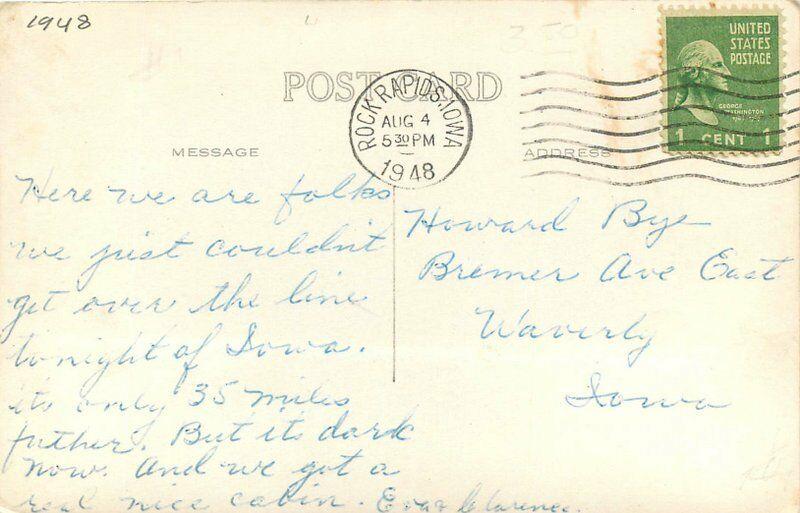 1948
3.50
POST CARD
ROCK RAPIDS, IOWA
AUG 4
5 30 PM
1948
UNITED
STATES
POSTAGE
GEORGE
WASHINGTON
1 CENT 1
MESSAGE
ADDRESS
Here we are folks
we just couldn't
get over the line
tonight of Iowa.
its only 35 miles
futher. But its dark
now. And we got a
real nice cabin. Eva & Clarence.
Howard Bye
Bremer Ave East
Waverly
Iowa